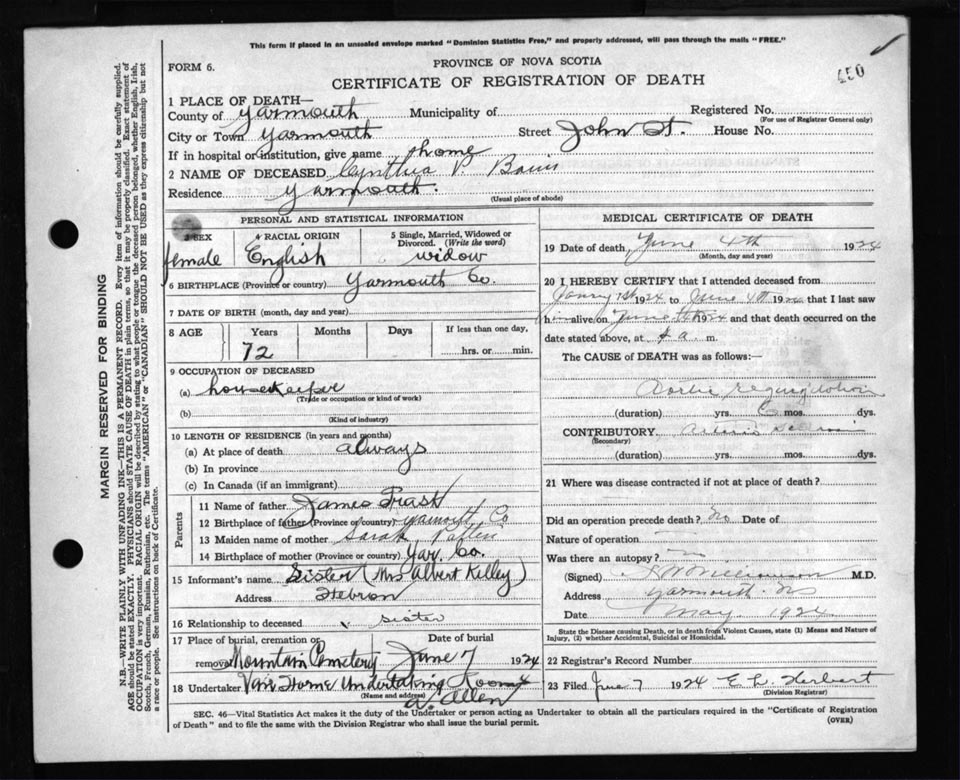 This form if placed in an unsealed envelope marked "Dominion Statistics Free," and properly addressed, will pass through the mails "FREE."
FORM 6.
PROVINCE OF NOVA SCOTIA
450
CERTIFICATE OF REGISTRATION OF DEATH
1 PLACE OF DEATH—
County of Yarmouth Municipality of Registered No.
(For use of Registrar General only)
City or Town Yarmouth Street John St. House No.
If in hospital or institution, give name home
2 NAME OF DECEASED Cynthia V.
Residence Yarmouth.
(Usual place of abode)
PERSONAL AND STATISTICAL INFORMATION
3 SEX 4 RACIAL ORIGIN 5 Single, Married, Widowed or Divorced. (Write the word)
female English widow
6 BIRTHPLACE (Province or country) Yarmouth Co.
7 DATE OF BIRTH (month, day and year)
8 AGE Years Months Days If less than one day,
72 hrs. or min.
9 OCCUPATION OF DECEASED
(a) housekeeper
(Trade or occupation or kind of work)
(b)
(Kind of industry)
10 LENGTH OF RESIDENCE (in years and months)
(a) At place of death always
(b) In province
(c) In Canada (if an immigrant)
Parents
11 Name of father James Trask
12 Birthplace of father (Province or country) Yarmouth Co
13 Maiden name of mother Sarah
14 Birthplace of mother (Province or country) Yar. Co.
15 Informant's name Sister (Mrs Albert Kelley)
Address Hebron
16 Relationship to deceased sister
17 Place of burial, cremation or removal Mountain Cemetery
Date of burial June 7 1924
18 Undertaker Van Horne Undertaking Rooms
(Name and address)
A. Allen
MEDICAL CERTIFICATE OF DEATH
19 Date of death June 4th 1924
(Month, day and year)
20 I HEREBY CERTIFY that I attended deceased from
1st 1924 to June 4th 1924 that I last saw
him alive on June 1924 and that death occurred on
date stated above, at a. m.
The CAUSE of DEATH was as follows:
Aortic regurgitation
(duration) yrs. 6 mos. dys.
CONTRIBUTORY
(Secondary)
(duration) yrs. mos. dys.
21 Where was disease contracted if not at place of death?
Did an operation precede death? No Date of
Nature of operation
Was there an autopsy? no
(Signed) M.D.
Address Yarmouth NS
Date May 1924
State the Disease causing Death, or in death from Violent Causes, state (1) Means and Nature of
Injury, (2) whether Accidental, Suicidal or Homicidal.
22 Registrar's Record Number
23 Filed June 7 1924 E. L. Herbert
(Division Registrar)
SEC. 46—Vital Statistics Act makes it the duty of the Undertaker or person acting as Undertaker to obtain all the particulars required in the "Certificate of Registration
of Death" and to file the same with the Division Registrar who shall issue the burial permit.
(OVER)
MARGIN RESERVED FOR BINDING
N.B.—WRITE PLAINLY WITH UNFADING INK—THIS IS A PERMANENT RECORD. Every item of information should be carefully supplied.
AGE should be stated EXACTLY. PHYSICIANS should STATE CAUSE OF DEATH in plain terms, so that it may be properly classified. Exact statement of
OCCUPATION is very important. RACIAL ORIGIN will be described by stating to what people or tongue the deceased person belonged, whether English, Irish,
Scotch, French, German, Russian, Ruthenian, etc. The terms "AMERICAN" or "CANADIAN" SHOULD NOT BE USED as they express citizenship but not
a race or people. See instructions on back of Certificate.